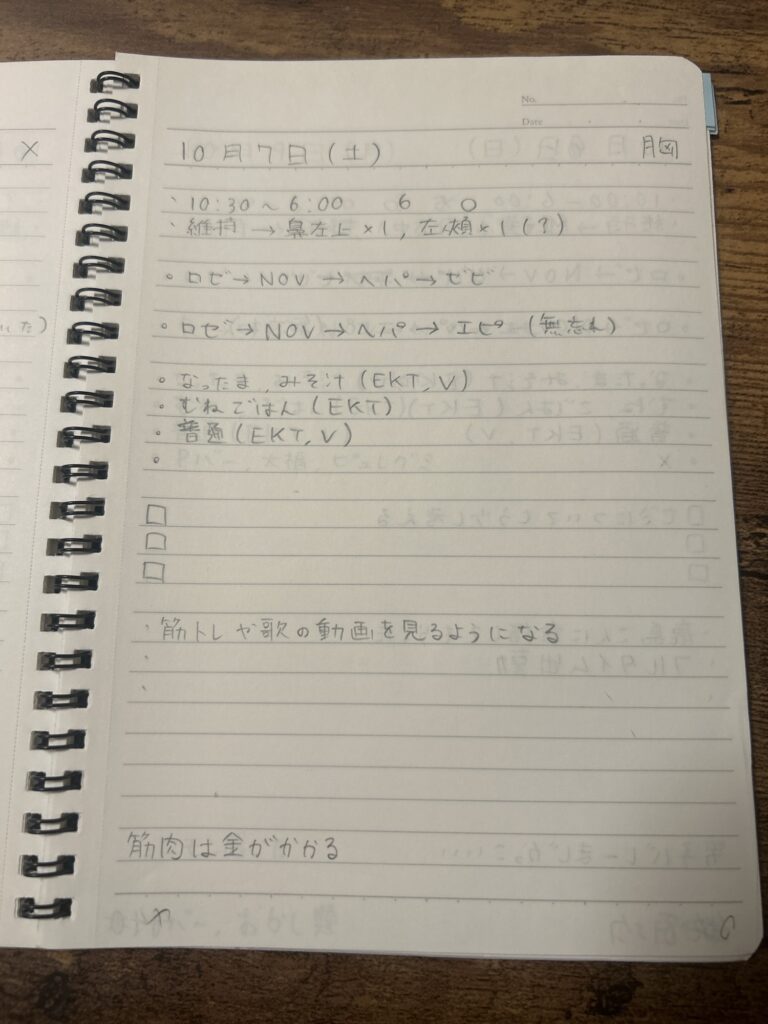 No.
Date
10月7日(土) 胸
・10:30～6:00 6 ○
・維持→鼻左上×1, 左頬×1(?)
・ロゼ→NOV→ヘパ→ゼビ
・ロゼ→NOV→ヘパ→エピ(無忘れ)
・なったま,みそ汁(EKT,V)
・むねごはん(EKT)
・普通(EKT,V)
・
□
□
□
・筋トレや歌の動画を見るようになる
・
・
筋肉は金がかかる
×
いた)